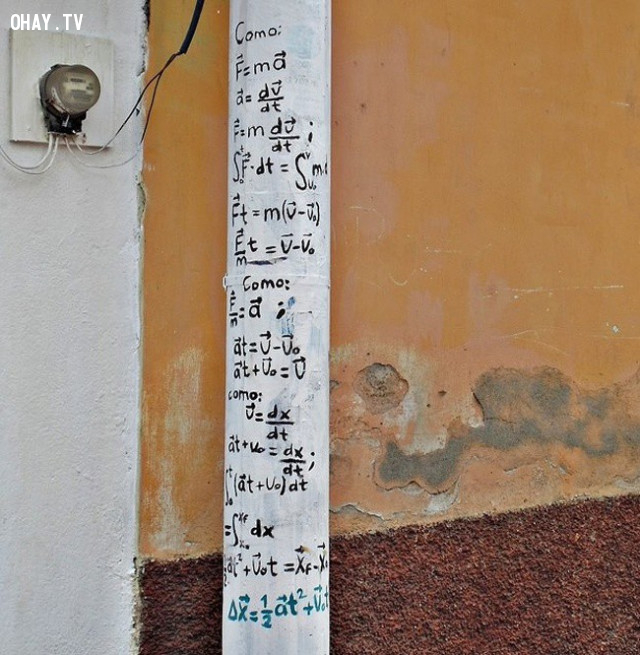 OHAY.TV
Como:
F⃗=ma⃗
a⃗=dv⃗/dt
F⃗=m dv⃗/dt ;
∫₀ᵗF⃗·dt = ∫ᵥ₀ᵛ m
F⃗t=m(v⃗-v⃗₀)
F⃗/m t = v⃗-v⃗₀
Como:
F⃗/m=a⃗ ;
a⃗t=v⃗-v⃗₀
a⃗t+v⃗₀=v⃗
como:
v⃗=dx/dt
a⃗t+v₀=dx/dt;
∫₀ᵗ(a⃗t+v₀)dt
=∫ dx
a⃗t²+v⃗₀t=x⃗f-x⃗
Δx⃗=1/2 a⃗t²+v⃗₀t